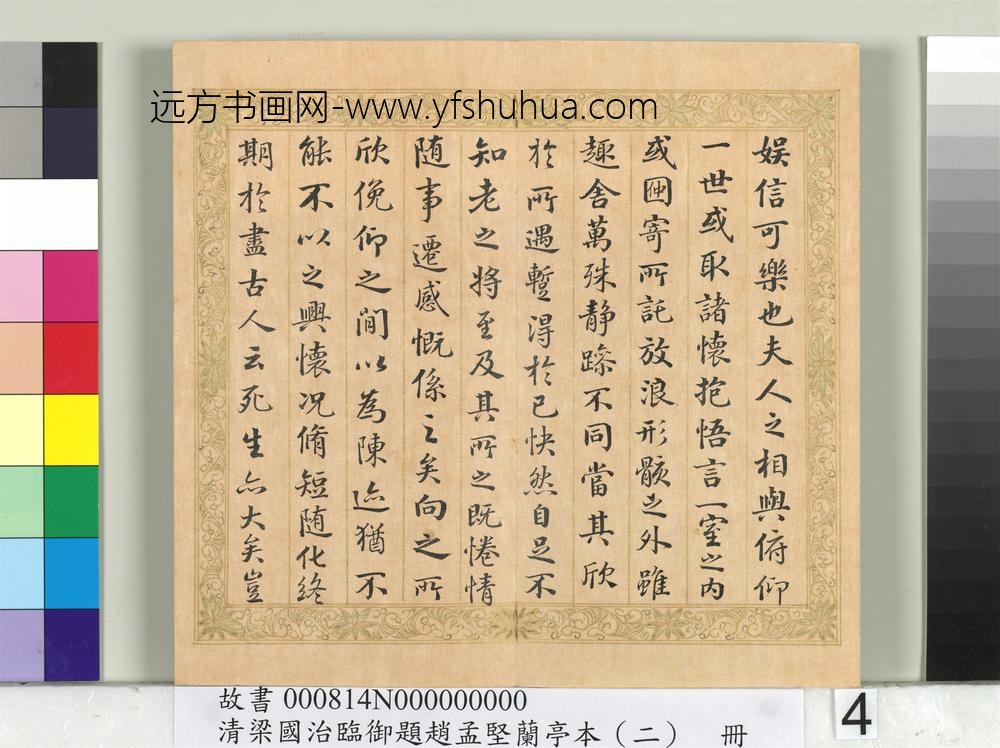 远方书画网-www.yfshuhua.com
娛信可樂也夫人之相與俯仰
一世或取諸懷抱悟言一室之内
或因寄所託放浪形骸之外雖
趣舍萬殊静躁不同當其欣
於所遇蹔得於己快然自足不
知老之將至及其所之既惓情
随事遷感慨係之矣向之所
欣俛仰之間以為陳迹猶不
能不以之興懐况脩短随化終
期於盡古人云死生亦大矣豈
故書000814N000000000
清梁國治臨御題趙孟堅蘭亭本（二） 冊
4